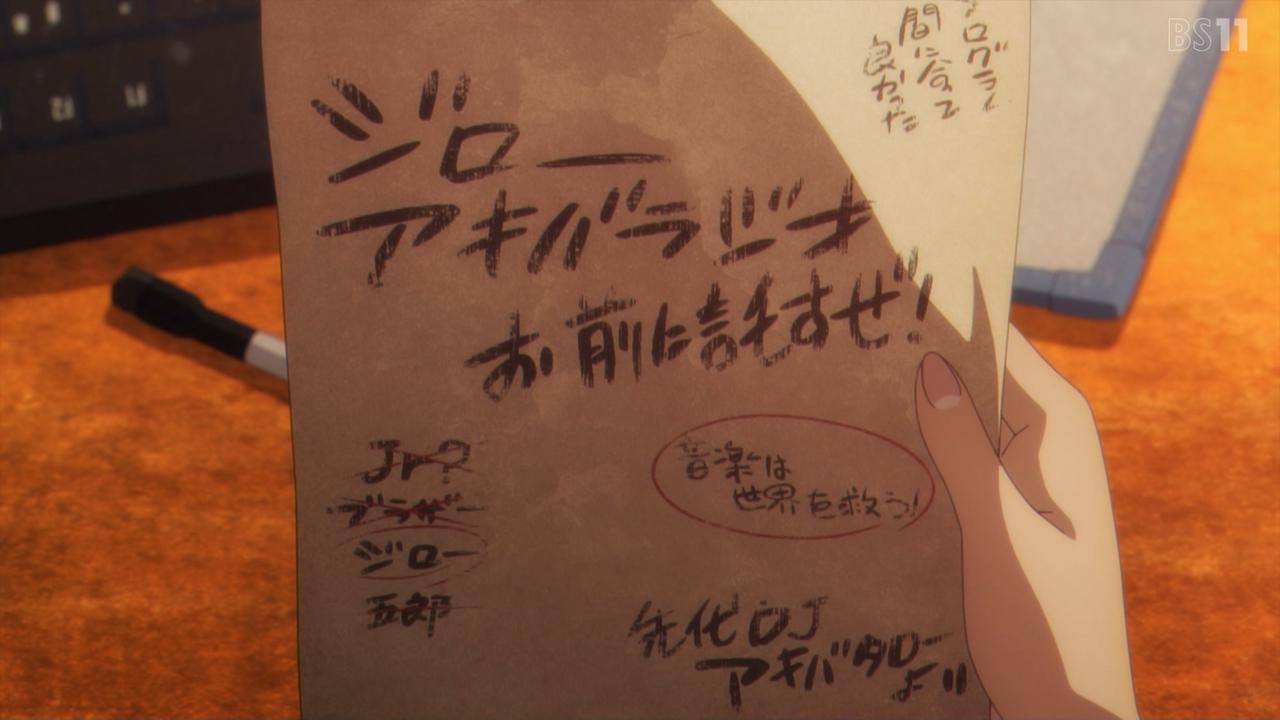 BS11
プログラム
間に合って
良かった
ジロー
アキバラジオ
お前に託すぜ!
Jr?
ブラザー
ジロー
五郎
音楽は
世界を救う!
先代DJ
アキバタロー
より